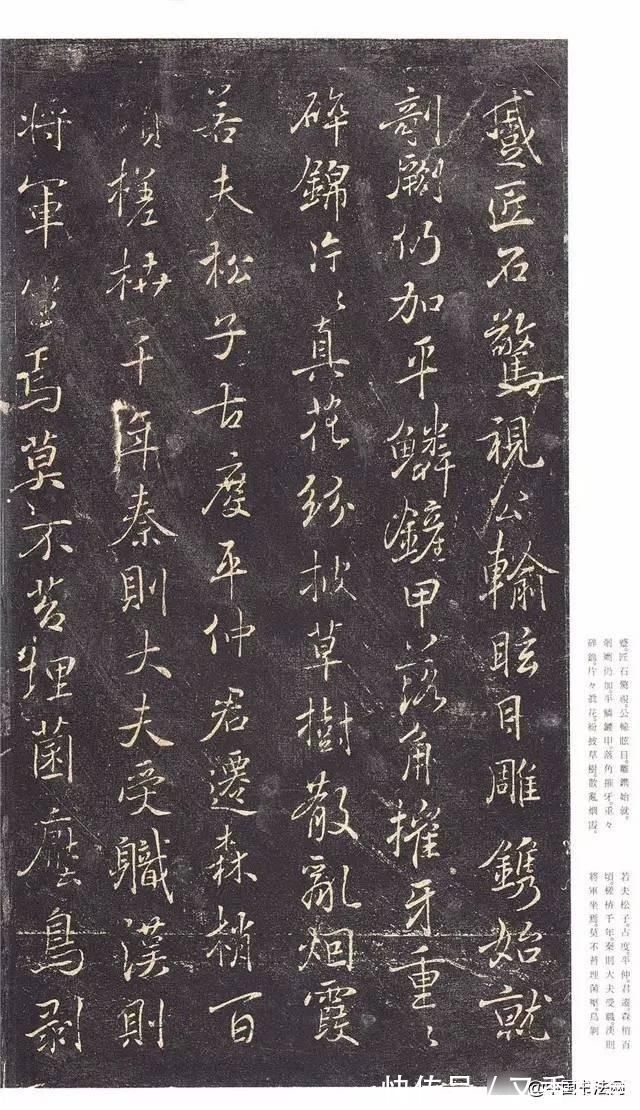 蹙匠石驚視公輸眩目雕鐫始就
剞劂仍加平鱗鏟甲落角摧牙重〻
碎錦片〻真花紛披草樹散亂烟霞
若夫松子古度平仲君遷森梢百
頃槎枿千年秦則大夫受職漢則
將軍坐焉莫不苔埋菌壓鳥剥
蹙。匠石驚視。公輸眩目。雕鐫始就。
剞劂仍加。平鱗鏟甲。落角摧牙。重々
碎錦。片々眞花。紛披草樹。散亂烟霞。
若夫松子。古度。平仲。君遷。森梢百
頃。槎枿千年。秦則大夫受職。漢則
將軍坐焉。莫不苔埋菌壓。鳥剝
快传号/又
@中国书法网